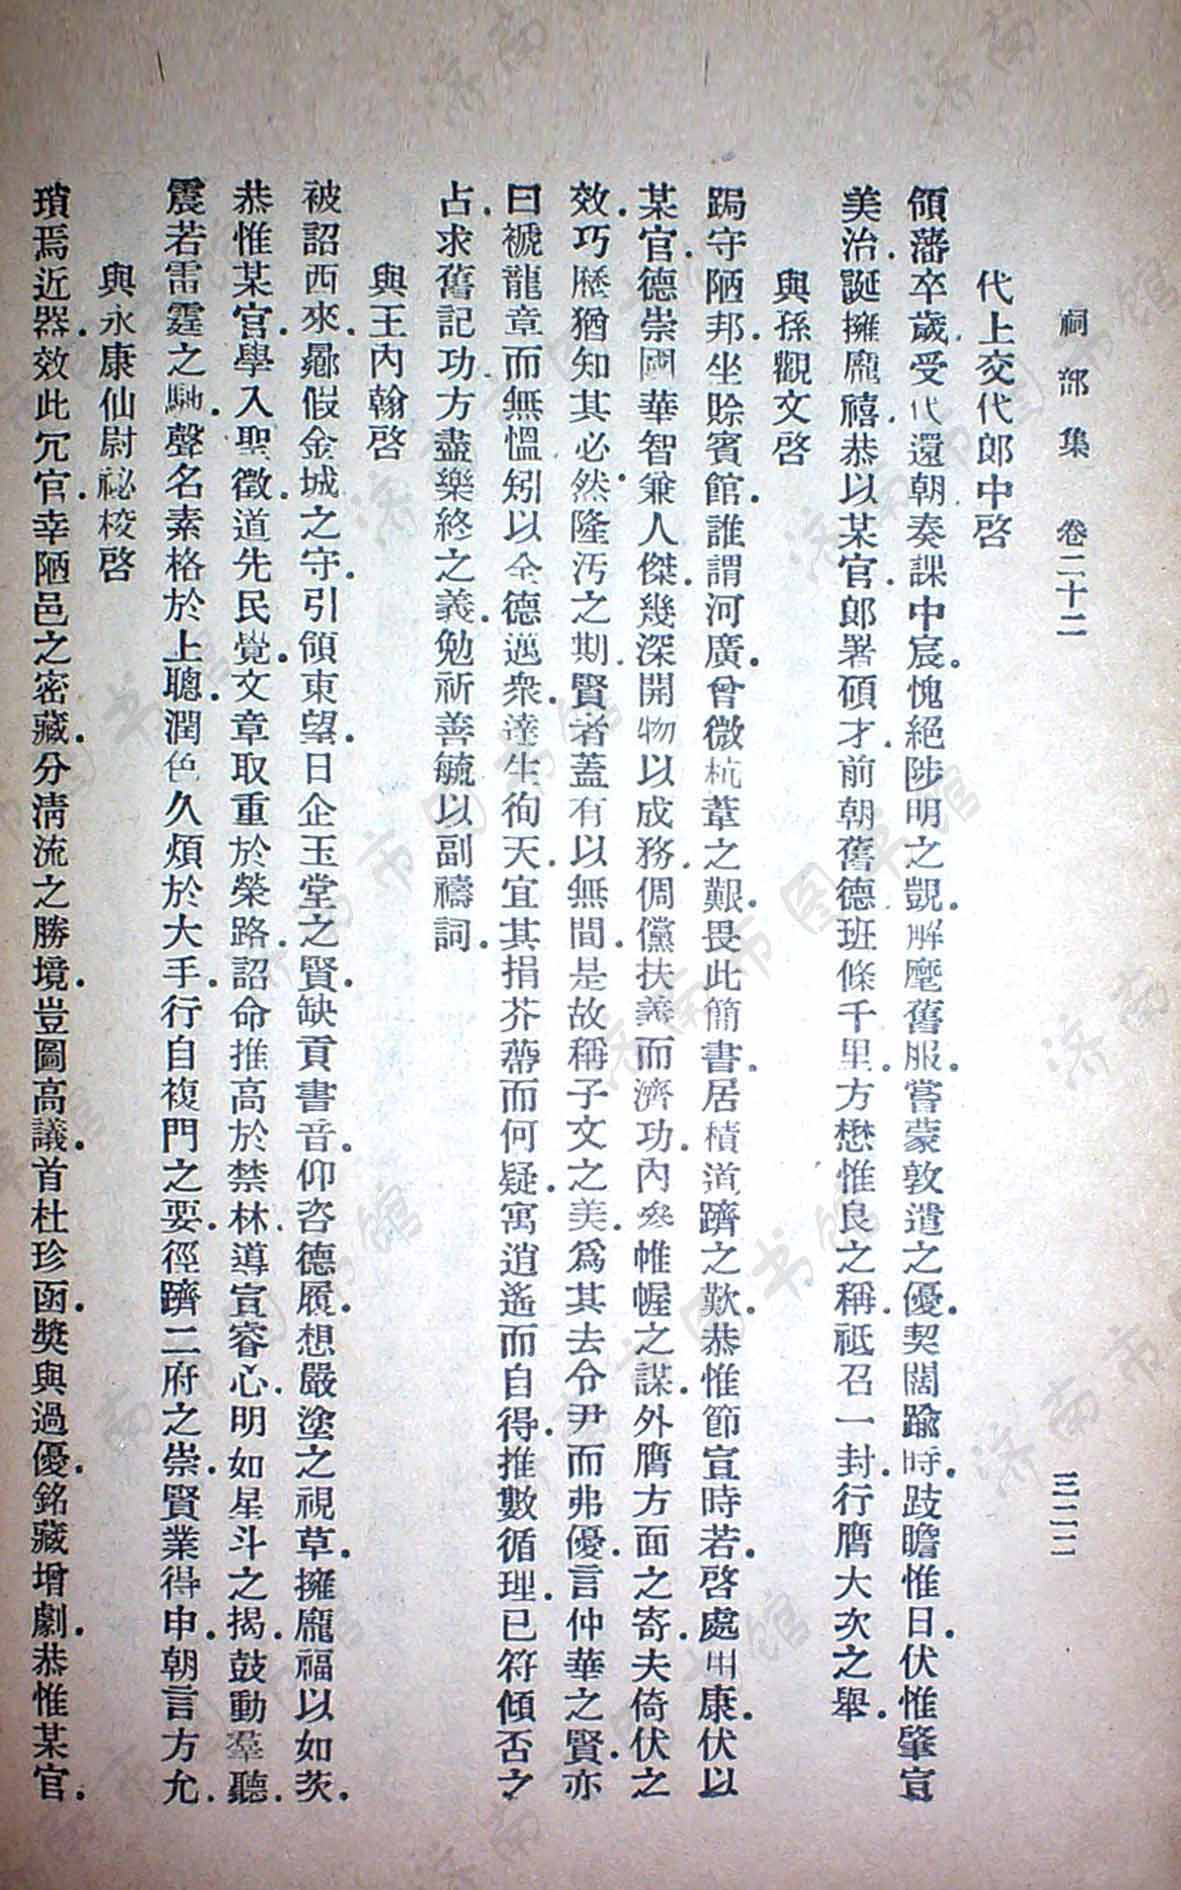 祠部集　卷二十二　三二二
代上交代郎中啓
領藩卒歲．受代還朝．奏課中宸。愧絕陟明之覬．解麾舊服．嘗蒙敦遣之優．契闊踰時．跂瞻惟日．伏惟肇宣
美治．誕擁龐禧．恭以某官．郎署碩才．前朝舊德．班條千里．方懋惟良之稱．祗召一封．行膺大次之舉．
與孫觀文啓
跼守陋邦．坐賒賓館．誰謂河廣．曾微杭葦之艱．畏此簡書．居積道躋之歎．恭惟節宣時若．啓處用康．伏以
某官．德崇國華．智兼人傑．幾深開物以成務．倜儻扶義而濟功．內參帷幄之謀．外膺方面之寄．夫倚伏之
效．巧歷猶知其必然．隆汚之期．賢者蓋有以無間．是故稱子文之美．爲其去令尹而弗優．言仲華之賢．亦
曰褫龍章而無慍．矧以全德邁衆．達生徇天．宜其捐芥蔕而何疑．寓逍遙而自得．推數循理．已符傾否之
占．求舊記功．方盡樂終之義．勉祈善毓．以副禱詞．
與王內翰啓
被詔西來．勮假金城之守．引領東望．日企玉堂之賢．缺貢書音．仰咨德履．想嚴塗之視草．擁龐福以如茨．
恭惟某官．學入聖徵．道先民覺．文章取重於榮路．詔命推高於禁林．導宣睿心．明如星斗之揭．鼓動羣聽．
震若雷霆之馳．聲名素格於上聰．潤色久煩於大手．行自複門之要．徑躋二府之崇．賢業得申．朝言方允．
與永康仙尉祕校啓
瑣焉近器．效此冗官．幸陋邑之密藏．分清流之勝境．豈圖高議．首杜珍函．獎與過優．銘藏增劇．恭惟某官．